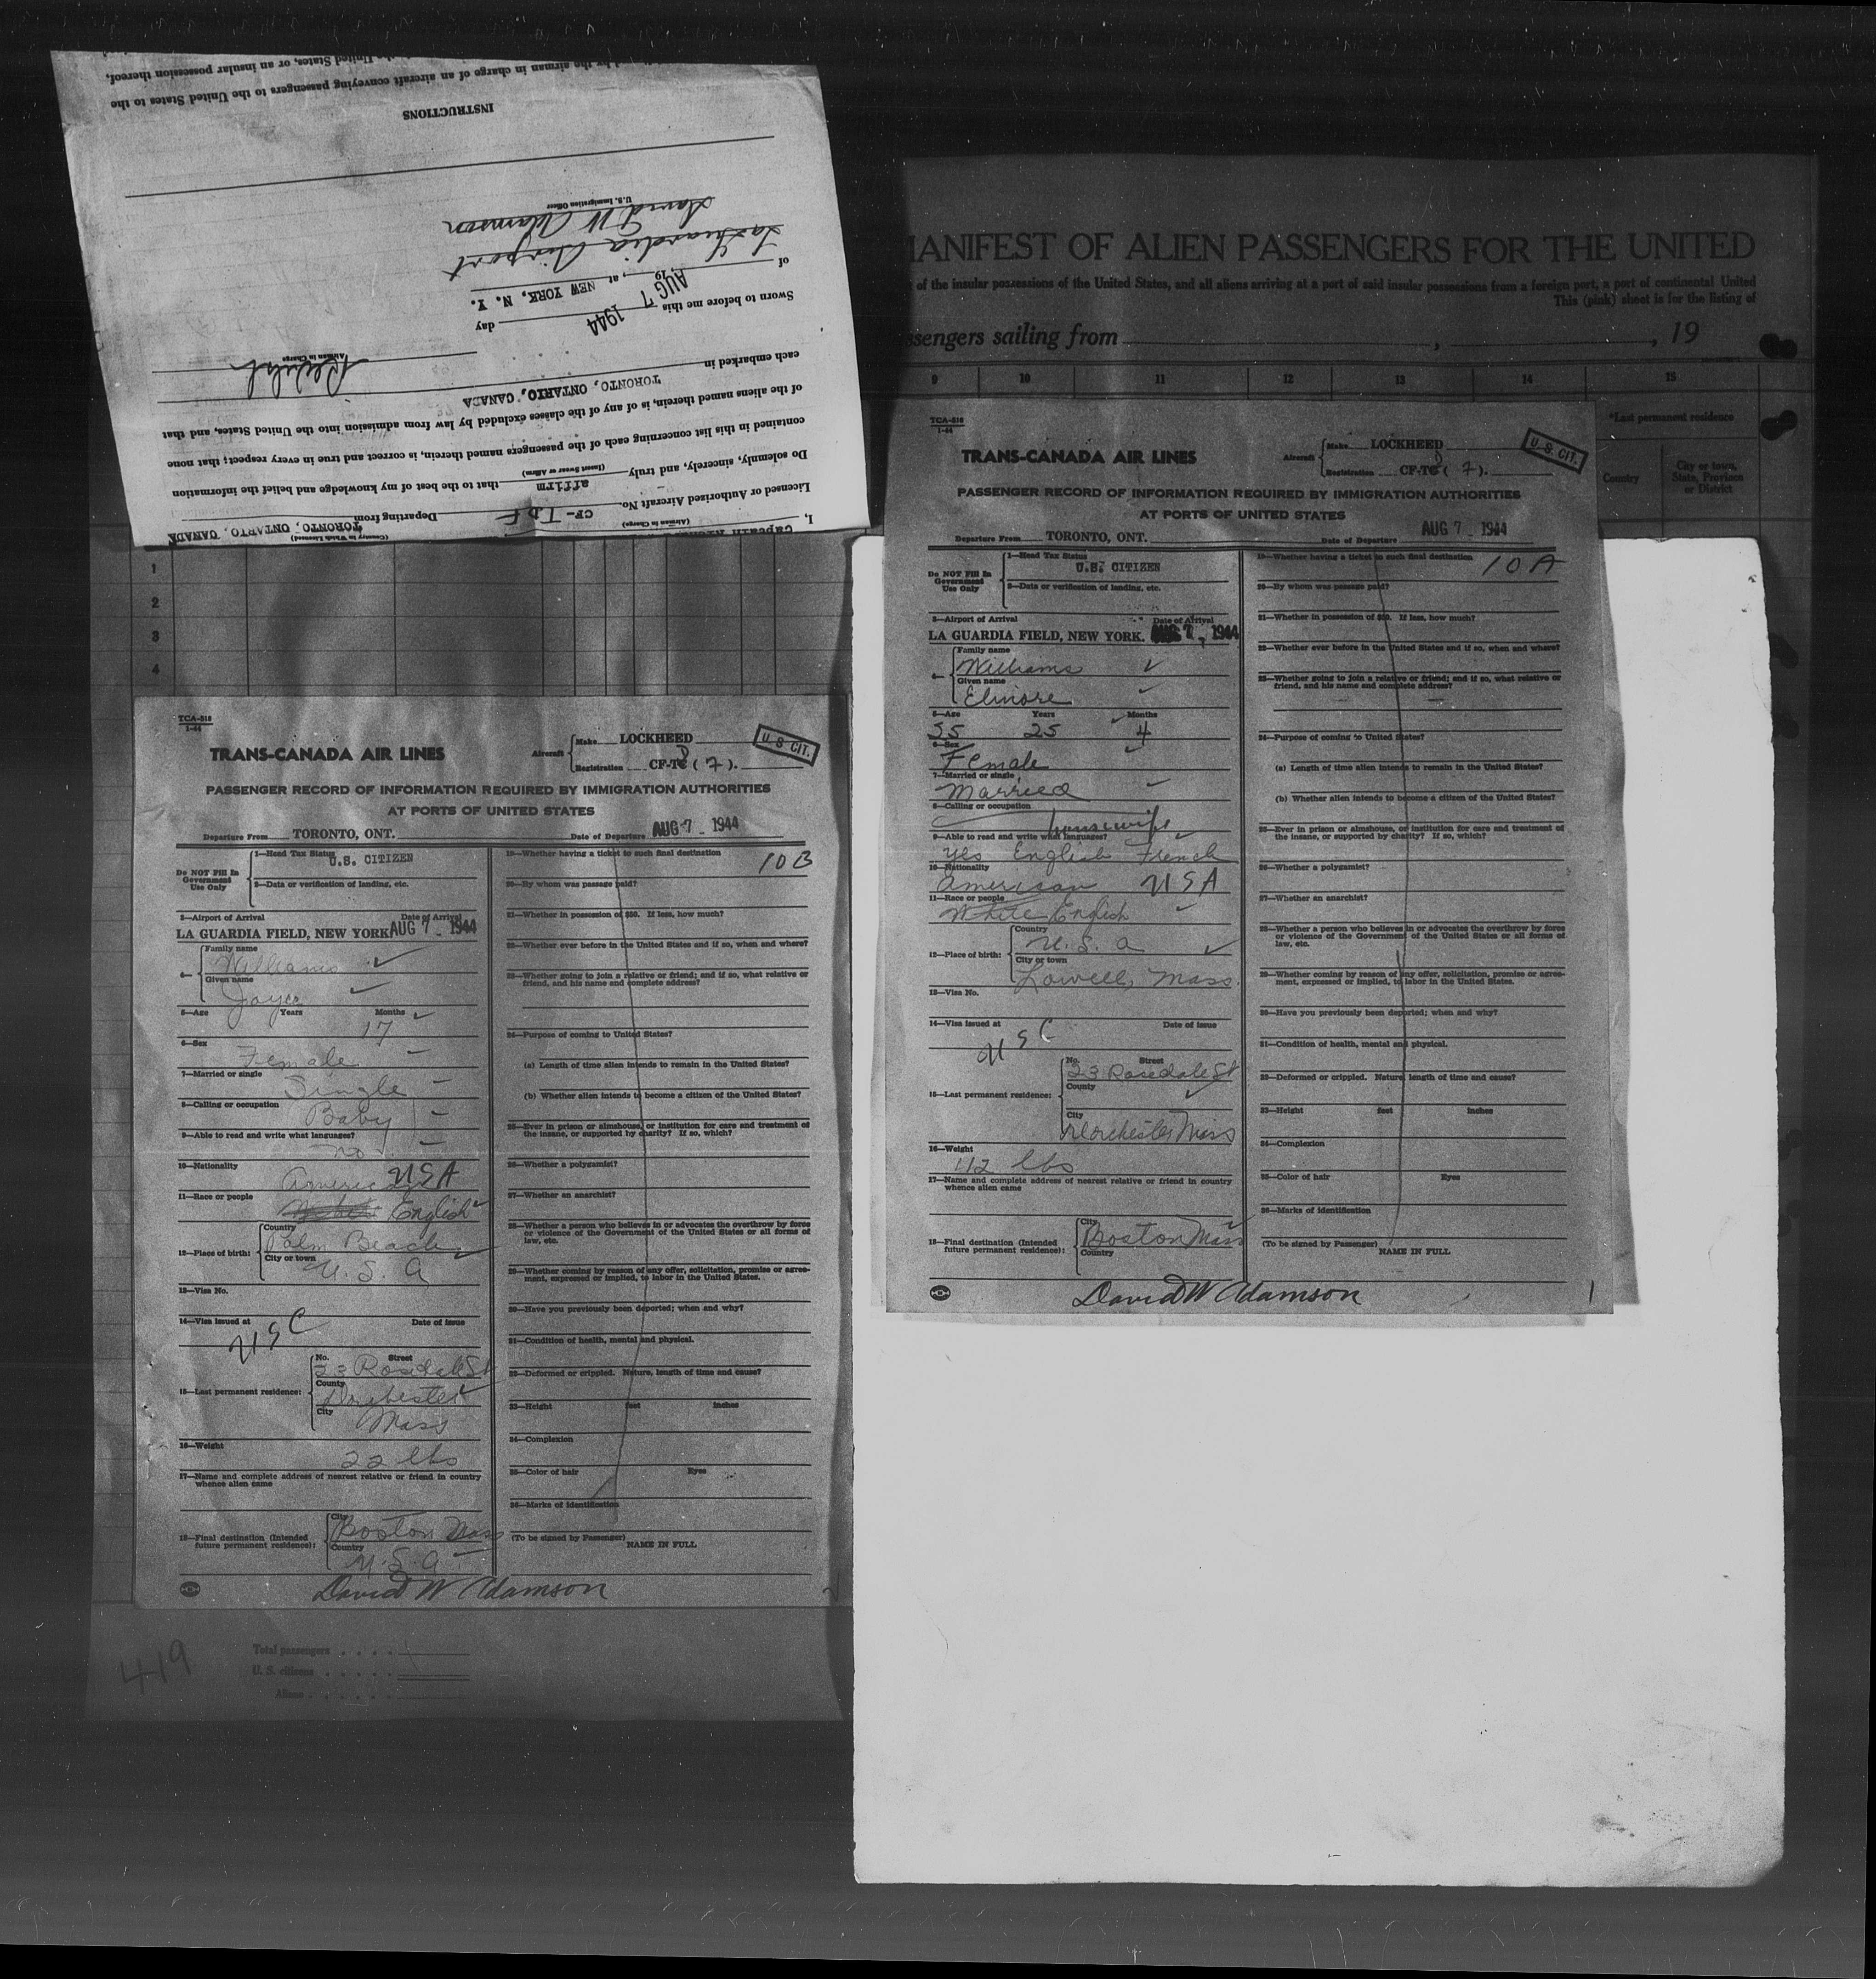 INSTRUCTIONS
by the airman in charge of an aircraft conveying passengers to the United States to the
United States, or an insular possession thereof,
I, Captain
(Airman in Charge)
(Country in Which Licensed)
Licensed or Authorized Aircraft No. CF-TDF Departing from TORONTO, ONTARIO, CANADA
Do solemnly, sincerely, and truly affirm that to the best of my knowledge and belief the information
(Insert Swear or Affirm)
contained in this list concerning each of the passengers named therein, is correct and true in every respect; that none
of the aliens named therein, is of any of the classes excluded by law from admission into the United States, and that
each embarked in TORONTO, ONTARIO, CANADA
Airman in Charge
Sworn to before me this AUG 7 1944 day
of , 19 , at NEW YORK, N. Y.
LaGuardia Airport
David W Adamson
U.S. Immigration Officer
MANIFEST OF ALIEN PASSENGERS FOR THE UNITED
of the insular possessions of the United States, and all aliens arriving at a port of said insular possessions from a foreign port, a port of continental United
This (pink) sheet is for the listing of
ssengers sailing from , , 19
9 10 11 12 13 14 15
*Last permanent residence
Country
City or town, State, Province or District
1
2
3
4
TCA-518
1-44
TRANS-CANADA AIR LINES
Aircraft
Make LOCKHEED
Registration CF-TD (7).
U.S. CIT.
PASSENGER RECORD OF INFORMATION REQUIRED BY IMMIGRATION AUTHORITIES
AT PORTS OF UNITED STATES
Departure From TORONTO, ONT. Date of Departure AUG 7 - 1944
Do NOT Fill In Government Use Only
1—Head Tax Status U.S. CITIZEN
2—Data or verification of landing, etc.
3—Airport of Arrival Date of Arrival
LA GUARDIA FIELD, NEW YORK AUG 7 - 1944
4—
Family name
Williams
Given name
Joyce
5—Age Years Months
17
6—Sex
Female
7—Married or single
Single
8—Calling or occupation
Baby
9—Able to read and write what languages?
no
10—Nationality
American USA
11—Race or people
White English
12—Place of birth:
Country
Palm Beach
City or town
U. S. A
13—Visa No.
14—Visa issued at Date of issue
USC
15—Last permanent residence:
No. Street
23 Rosedale St
County
Dorchester
City
Mass
16—Weight
22 lbs
17—Name and complete address of nearest relative or friend in country
whence alien came
18—Final destination (Intended
future permanent residence):
City
Boston Mass
Country
U. S. A
19—Whether having a ticket to such final destination
10B
20—By whom was passage paid?
21—Whether in possession of $50. If less, how much?
22—Whether ever before in the United States and if so, when and where?
23—Whether going to join a relative or friend; and if so, what relative or
friend, and his name and complete address?
24—Purpose of coming to United States?
(a) Length of time alien intends to remain in the United States?
(b) Whether alien intends to become a citizen of the United States?
25—Ever in prison or almshouse, or institution for care and treatment of
the insane, or supported by charity? If so, which?
26—Whether a polygamist?
27—Whether an anarchist?
28—Whether a person who believes in or advocates the overthrow by force
or violence of the Government of the United States or all forms of
law, etc.
29—Whether coming by reason of any offer, solicitation, promise or agree-
ment, expressed or implied, to labor in the United States.
30—Have you previously been deported; when and why?
31—Condition of health, mental and physical.
32—Deformed or crippled. Nature, length of time and cause?
33—Height feet inches
34—Complexion
35—Color of hair Eyes
36—Marks of identification
(To be signed by Passenger)
NAME IN FULL
David W Adamson
419
Total passengers
U. S. citizens
Aliens
TCA-518
1-44
TRANS-CANADA AIR LINES
Aircraft
Make LOCKHEED
Registration CF-TD (7).
U.S. CIT.
PASSENGER RECORD OF INFORMATION REQUIRED BY IMMIGRATION AUTHORITIES
AT PORTS OF UNITED STATES
Departure From TORONTO, ONT. Date of Departure AUG 7 1944
Do NOT Fill In Government Use Only
1—Head Tax Status
U.S. CITIZEN
2—Data or verification of landing, etc.
3—Airport of Arrival Date of Arrival
LA GUARDIA FIELD, NEW YORK. AUG 7, 1944
4—
Family name
Williams
Given name
Elinore
5—Age Years Months
25 4
6—Sex
Female
7—Married or single
Married
8—Calling or occupation
housewife
9—Able to read and write what languages?
yes English French
10—Nationality
American USA
11—Race or people
White English
12—Place of birth:
Country
U. S. A
City or town
Lowell, Mass.
13—Visa No.
14—Visa issued at Date of issue
USC
15—Last permanent residence:
No. Street
23 Rosedale St
County
City
Dorchester Mass
16—Weight
112 lbs
17—Name and complete address of nearest relative or friend in country
whence alien came
18—Final destination (Intended
future permanent residence):
City
Boston Mass
Country
19—Whether having a ticket to such final destination
10A
20—By whom was passage paid?
21—Whether in possession of $50. If less, how much?
22—Whether ever before in the United States and if so, when and where?
23—Whether going to join a relative or friend; and if so, what relative or
friend, and his name and complete address?
24—Purpose of coming to United States?
(a) Length of time alien intends to remain in the United States?
(b) Whether alien intends to become a citizen of the United States?
25—Ever in prison or almshouse, or institution for care and treatment of
the insane, or supported by charity? If so, which?
26—Whether a polygamist?
27—Whether an anarchist?
28—Whether a person who believes in or advocates the overthrow by force
or violence of the Government of the United States or all forms of
law, etc.
29—Whether coming by reason of any offer, solicitation, promise or agree-
ment, expressed or implied, to labor in the United States.
30—Have you previously been deported; when and why?
31—Condition of health, mental and physical.
32—Deformed or crippled. Nature, length of time and cause?
33—Height feet inches
34—Complexion
35—Color of hair Eyes
36—Marks of identification
(To be signed by Passenger)
NAME IN FULL
David W Adamson